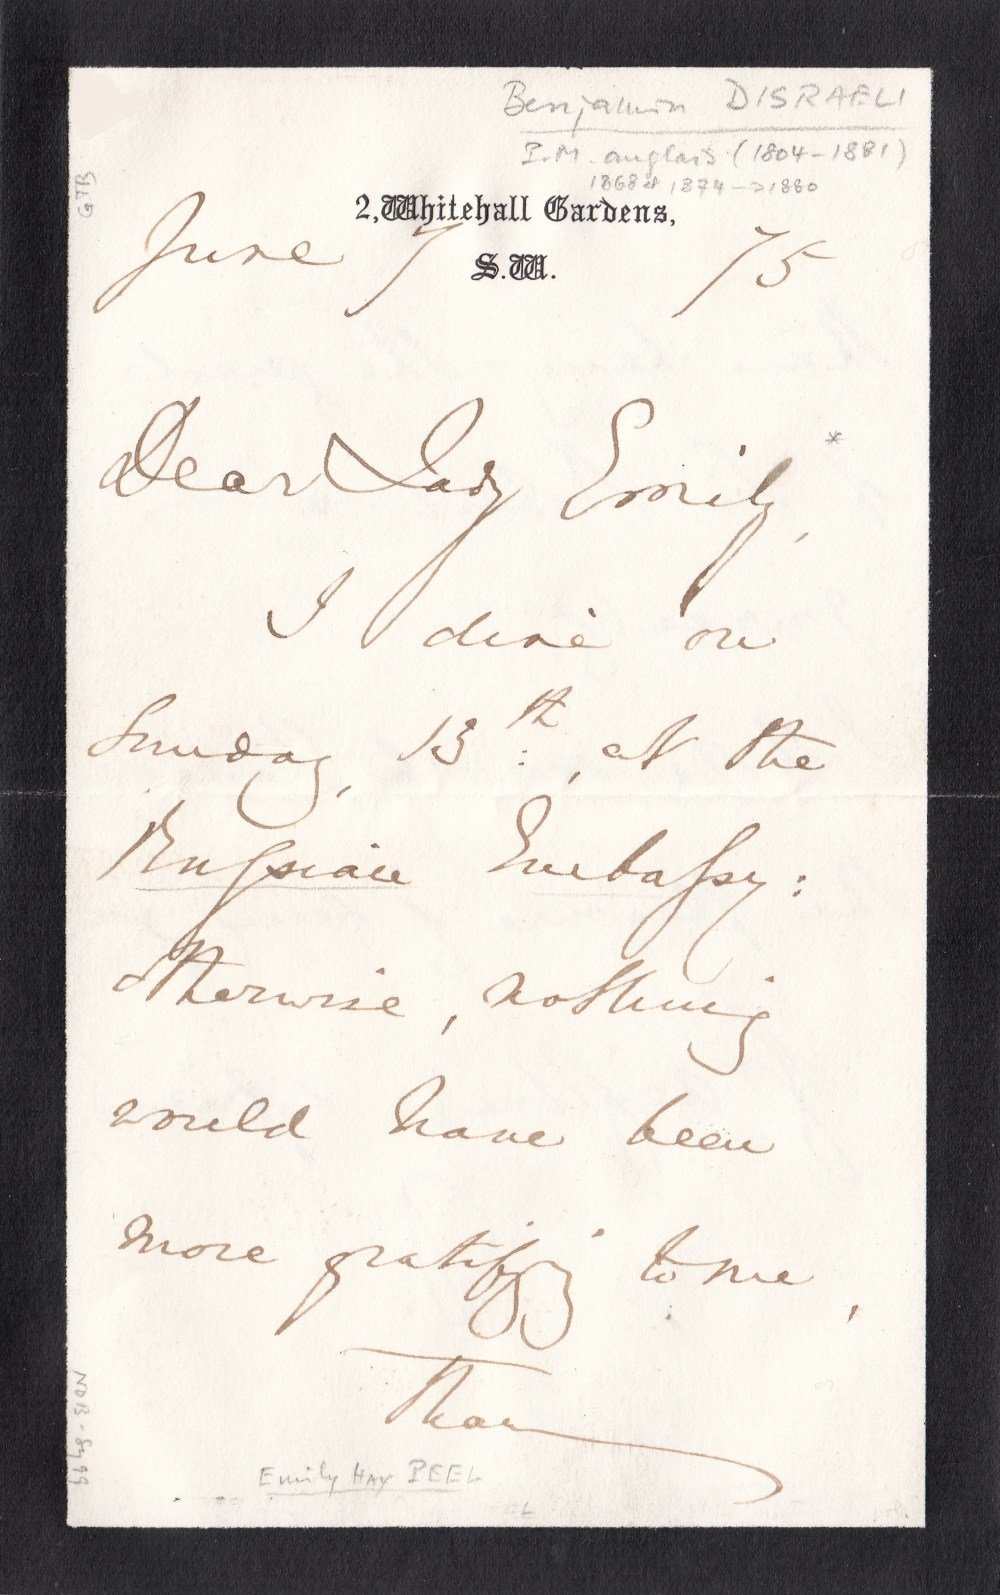 Benjamin DISRAELI
P.M. anglais (1804-1881)
1868 et 1874->1880
GTB
2, Whitehall Gardens,
S.W.
June 7 75
Dear Lady Emily, *
I dine on
Sunday, 13th, at the
Russian Embassy:
otherwise, nothing
would have been
more gratifyg to me,
than
Emily Hay PEEL